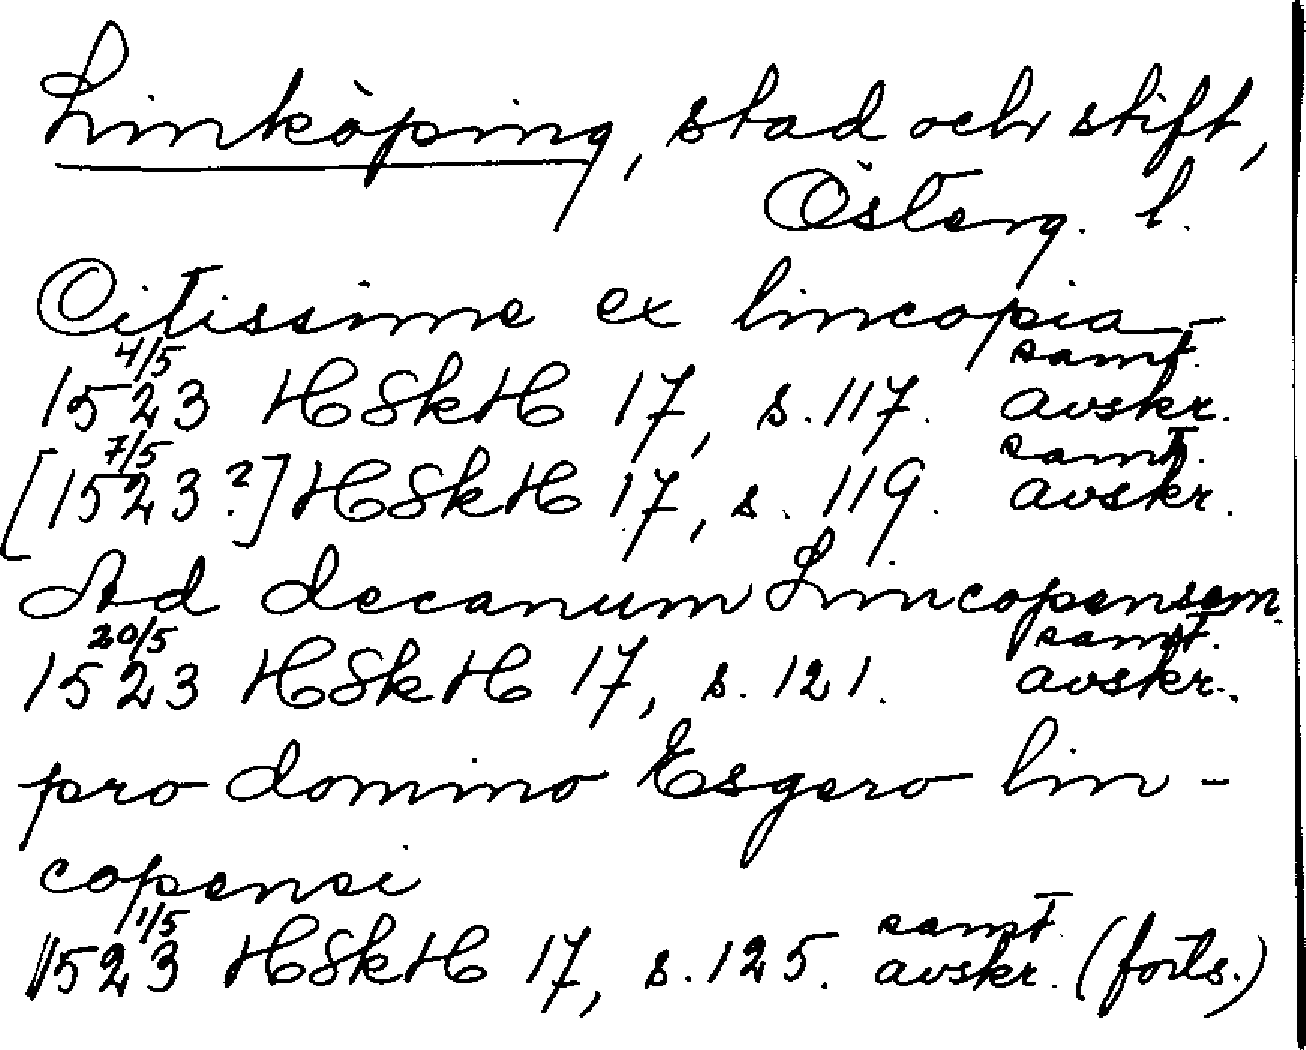 Linköping, stad och stift,
Österg. l.
Citissime ex lincopia
1523 4/5 HSkH 17, s. 117. samt. avskr.
[1523 7/5 ?] HSkH 17, s. 119. samt. avskr.
Ad decanum Lincopensem
1523 20/5 HSkH 17, s. 121. samt. avskr.
pro domino Esgero lin-
copensi
1523 11/5 HSkH 17, s. 125. samt. avskr. (forts.)